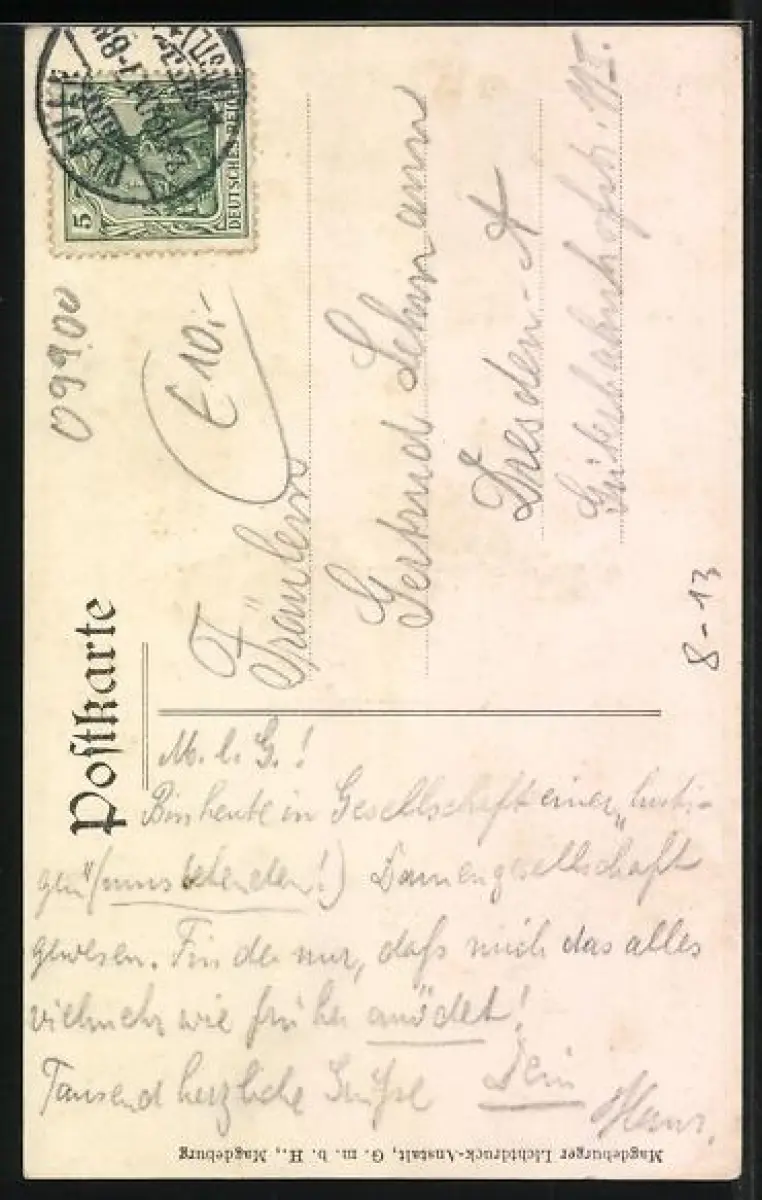 Postkarte
5
DEUTSCHES REICH
PLAUE
09900
€ 10,-
Fräulein
Gertrud Lehmann
Dresden-A
Güterbahnhofstr.
8-13
M. l. G.!
Bin heute in Gesellschaft einer „lusti-
gen“ ( !) Damengesellschaft
gewesen. Finde nur, daß mich das alles
vielmehr wie früher anödet!
Tausend herzliche Grüße Dein
Hans.
Magdeburger Lichtdruck-Anstalt, G. m. b. H., Magdeburg